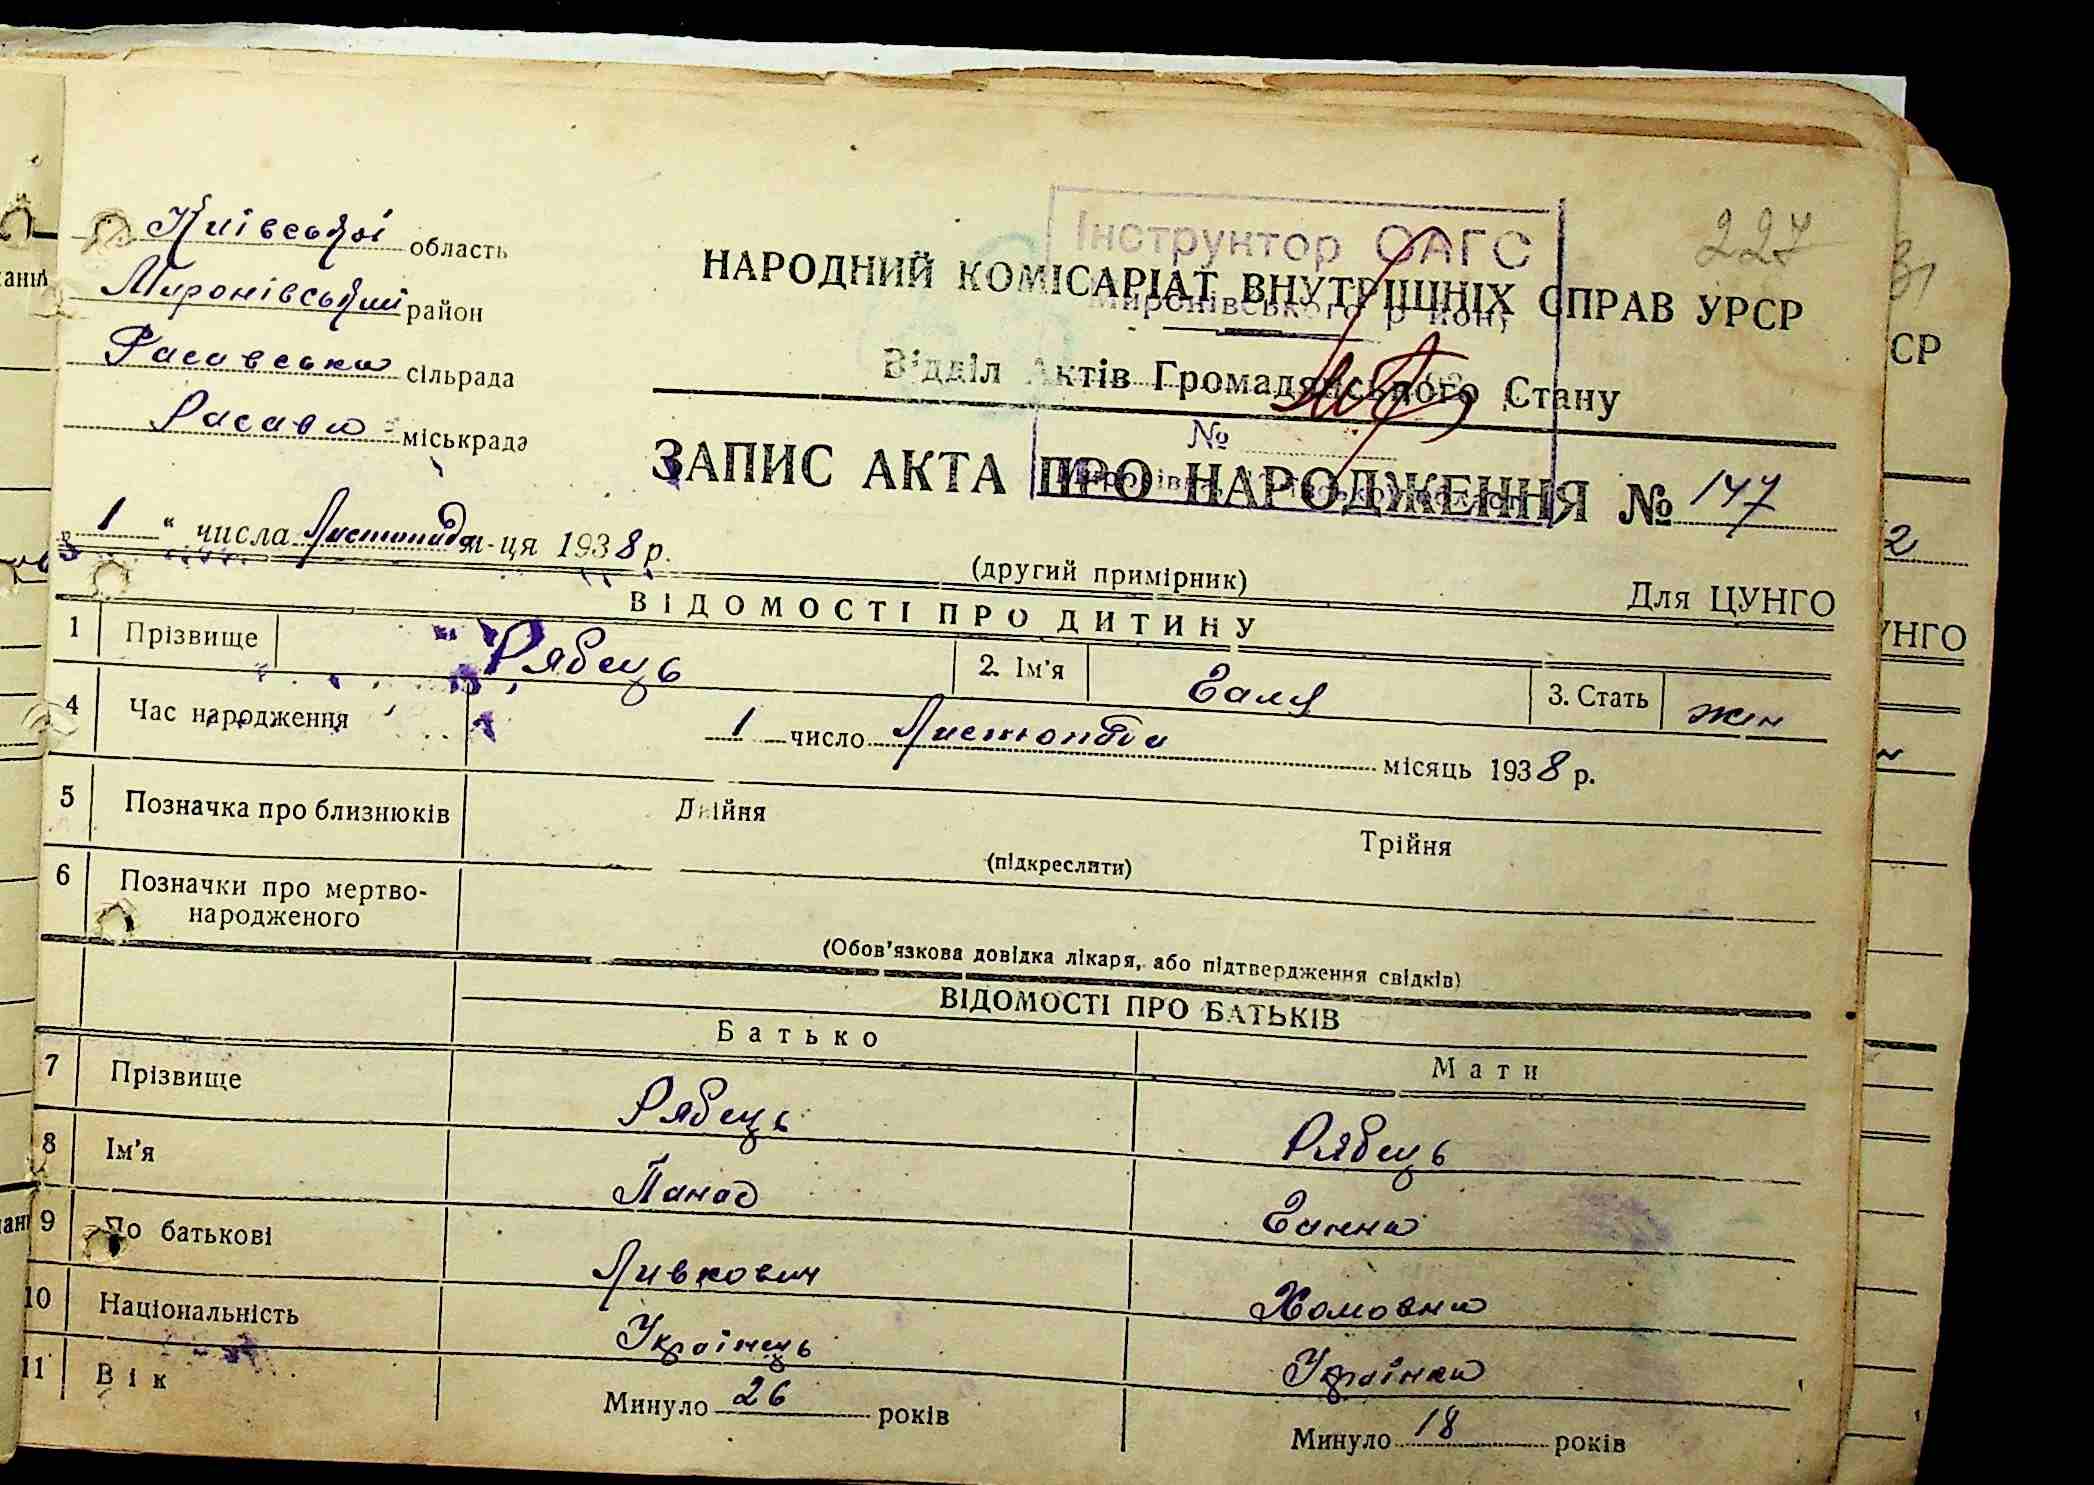 227
Київської область
Миронівський район
Расавська сільрада
Расава міськрада
Інструктор ОАГС
Миронівського району
НАРОДНИЙ КОМІСАРІАТ ВНУТРІШНІХ СПРАВ УРСР
Відділ Актів Громадянського Стану
№
ЗАПИС АКТА ПРО НАРОДЖЕННЯ № 147
1 " числа Листопада м-ця 1938 р.
(другий примірник)
Для ЦУНГО
ВІДОМОСТІ ПРО ДИТИНУ
1 Прізвище Рябець 2. Ім'я Галя 3. Стать жін
4 Час народження 1 число Листопада місяць 1938 р.
5 Позначка про близнюків Двійня Трійня
(підкреслити)
6 Позначки про мертво-
народженого
(Обов'язкова довідка лікаря, або підтвердження свідків)
ВІДОМОСТІ ПРО БАТЬКІВ
Батько Мати
7 Прізвище Рябець Рябець
8 Ім'я Панас Ганна
9 По батьковіЛивкович Хомовна
10 Національність Українець Українка
11 Вік Минуло 26 років Минуло 18 років
СР
2
УНГО